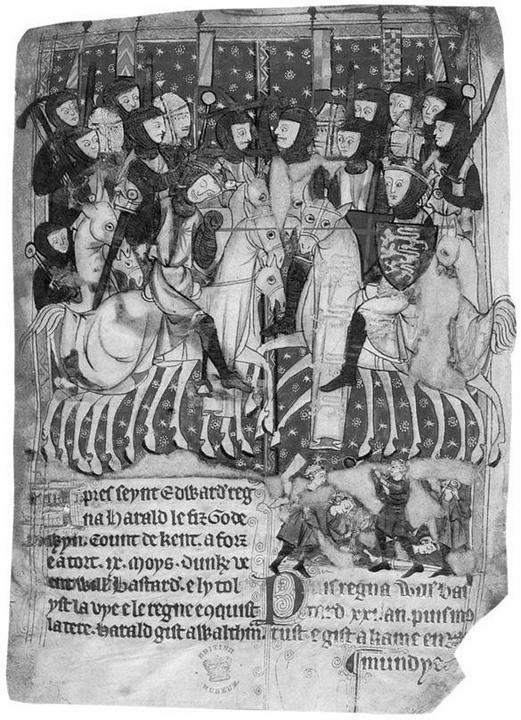 pres seynt Edward reg
na Harald le fiz Gode
wyn. Count de kent. a forz
e a tort. ix. moys. dunk ve
ent Will bastard. e ly tol
yst la vye e le regne e oquist
la tere. harald gist a Walthm.
Puis regna Will bas
tard xxi. an. puis mo
rust e gist a kame en
mundye
BRITISH
MUSEUM